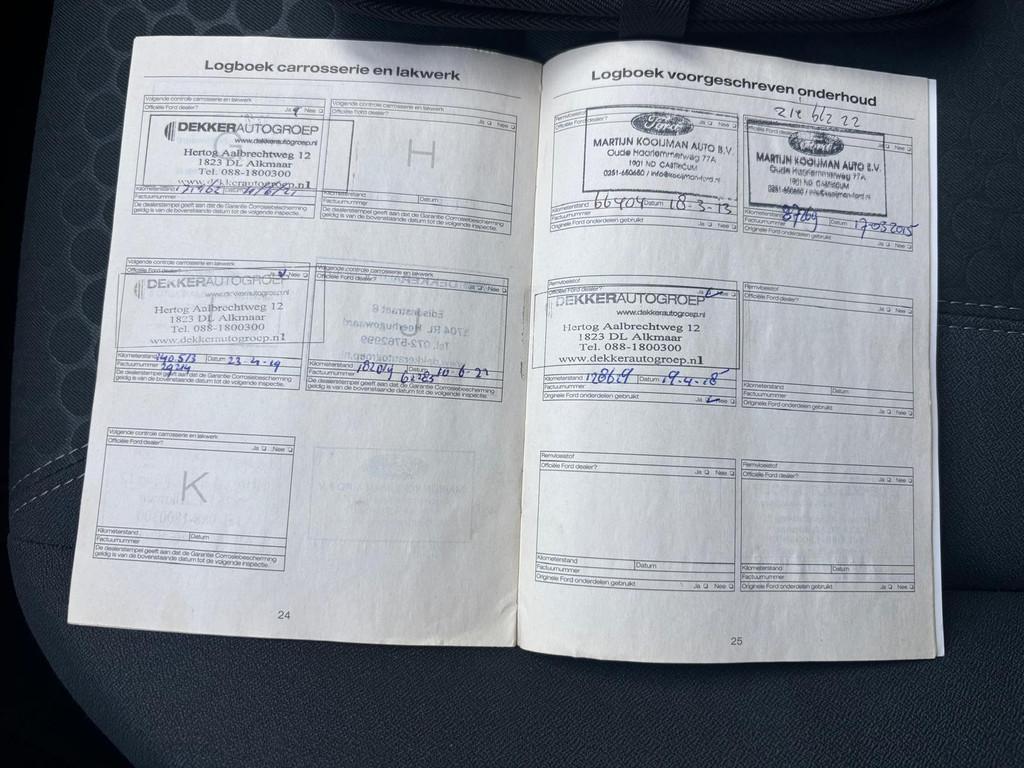 Logboek carrosserie en lakwerk
Volgende controle carrosserie en lakwerk
Officiële Ford dealer? Ja Nee
DEKKERAUTOGROEP
www.dekkerautogroep.nl
Hertog Aalbrechtweg 12
1823 DL Alkmaar
Tel. 088-1800300
www.dekkerautogroep.nl
Kilometerstand Datum
Factuurnummer
De dealerstempel geeft aan dat de Garantie Corrosiebescherming
geldig is van de bovenstaande datum tot de volgende inspectie.
Volgende controle carrosserie en lakwerk
Officiële Ford dealer? Ja Nee
H
Kilometerstand
Factuurnummer Datum
De dealerstempel geeft aan dat de Garantie Corrosiebescherming
geldig is van de bovenstaande datum tot de volgende inspectie.
Volgende controle carrosserie en lakwerk
Officiële Ford dealer? Nee
DEKKERAUTOGROEP
www.dekkerautogroep.nl
Hertog Aalbrechtweg 12
1823 DL Alkmaar
Tel. 088-1800300
www.dekkerautogroep.nl
Kilometerstand 140.513 Datum 23-4-19
Factuurnummer
De dealerstempel geeft aan dat de Garantie Corrosiebescherming
geldig is van de bovenstaande datum tot de volgende inspectie.
Volgende controle carrosserie en lakwerk
Officiële Ford dealer? Ja Nee
Kilometerstand 182014 Datum
Factuurnummer
De dealerstempel geeft aan dat de Garantie Corrosiebescherming
geldig is van de bovenstaande datum tot de volgende inspectie.
Volgende controle carrosserie en lakwerk
Officiële Ford dealer? Ja Nee
K
Kilometerstand Datum
Factuurnummer
De dealerstempel geeft aan dat de Garantie Corrosiebescherming
geldig is van de bovenstaande datum tot de volgende inspectie.
24
Logboek voorgeschreven onderhoud
zie blz 22
Remvloeistof
Officiële Ford dealer? Ja Nee
Ford
MARTIJN KOOIJMAN AUTO B.V.
Oude Haarlemmerweg 77A
1901 ND CASTRICUM
0251-650650 / info@kooijman-ford.nl
Kilometerstand 66404 Datum 18-3-13
Factuurnummer
Originele Ford onderdelen gebruikt Ja Nee
Officiële Ford dealer? Ja Nee
MARTIJN KOOIJMAN AUTO B.V.
Oude Haarlemmerweg 77A
1901 ND CASTRICUM
0251-650650 / info@kooijman-ford.nl
Kilometerstand Datum 17-03-2015
Factuurnummer
Originele Ford onderdelen gebruikt Ja Nee
Remvloeistof
Officiële Ford dealer? Nee
DEKKERAUTOGROEP
www.dekkerautogroep.nl
Hertog Aalbrechtweg 12
1823 DL Alkmaar
Tel. 088-1800300
www.dekkerautogroep.nl
Kilometerstand 128629 Datum 19-4-18
Factuurnummer
Originele Ford onderdelen gebruikt Ja Nee
Remvloeistof
Officiële Ford dealer? Ja Nee
Kilometerstand Datum
Factuurnummer
Originele Ford onderdelen gebruikt Ja Nee
Remvloeistof
Officiële Ford dealer? Ja Nee
Kilometerstand Datum
Factuurnummer
Originele Ford onderdelen gebruikt Ja Nee
Remvloeistof
Officiële Ford dealer? Ja Nee
Kilometerstand Datum
Factuurnummer
Originele Ford onderdelen gebruikt Ja Nee
25